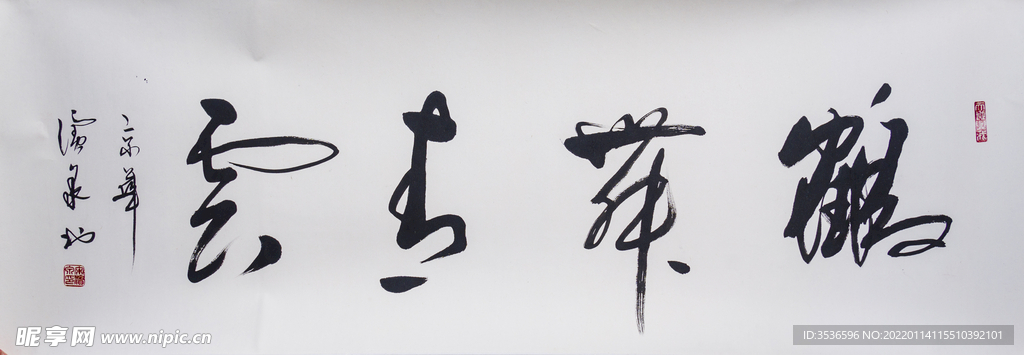 鶴舞青雲
京華
昵享网 www.nipic.cn
ID:3536596 NO:20220114115510392101